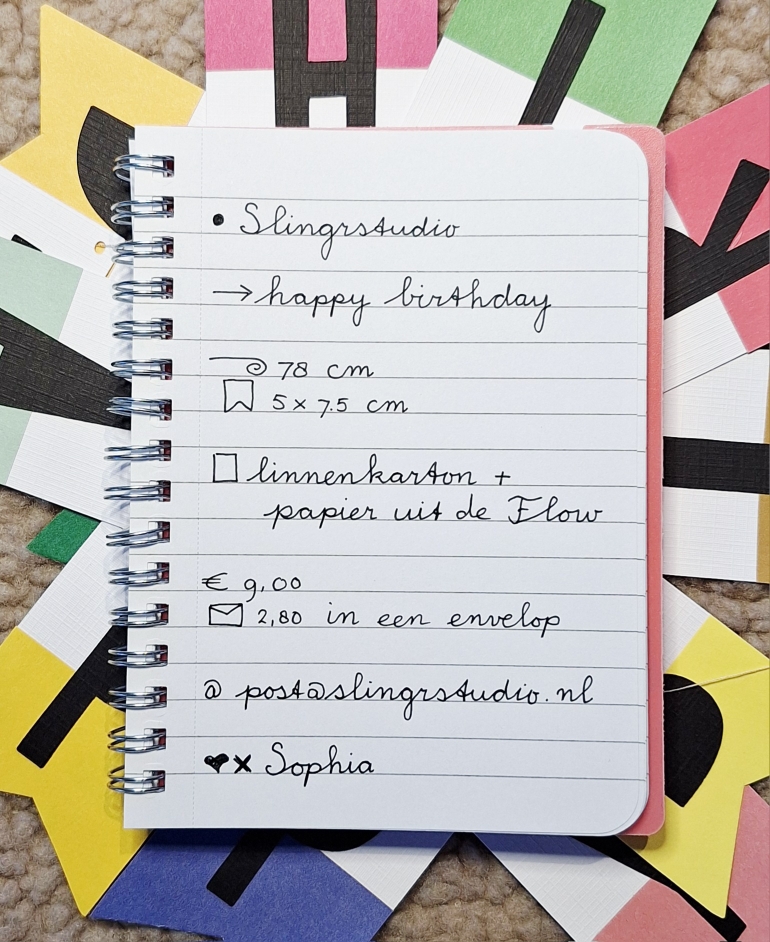 • Slingrstudio
→ happy birthday
78 cm
5 x 7.5 cm
linnenkarton +
papier uit de Flow
€ 9,00
2,80 in een envelop
@ post@slingrstudio.nl
♥x Sophia